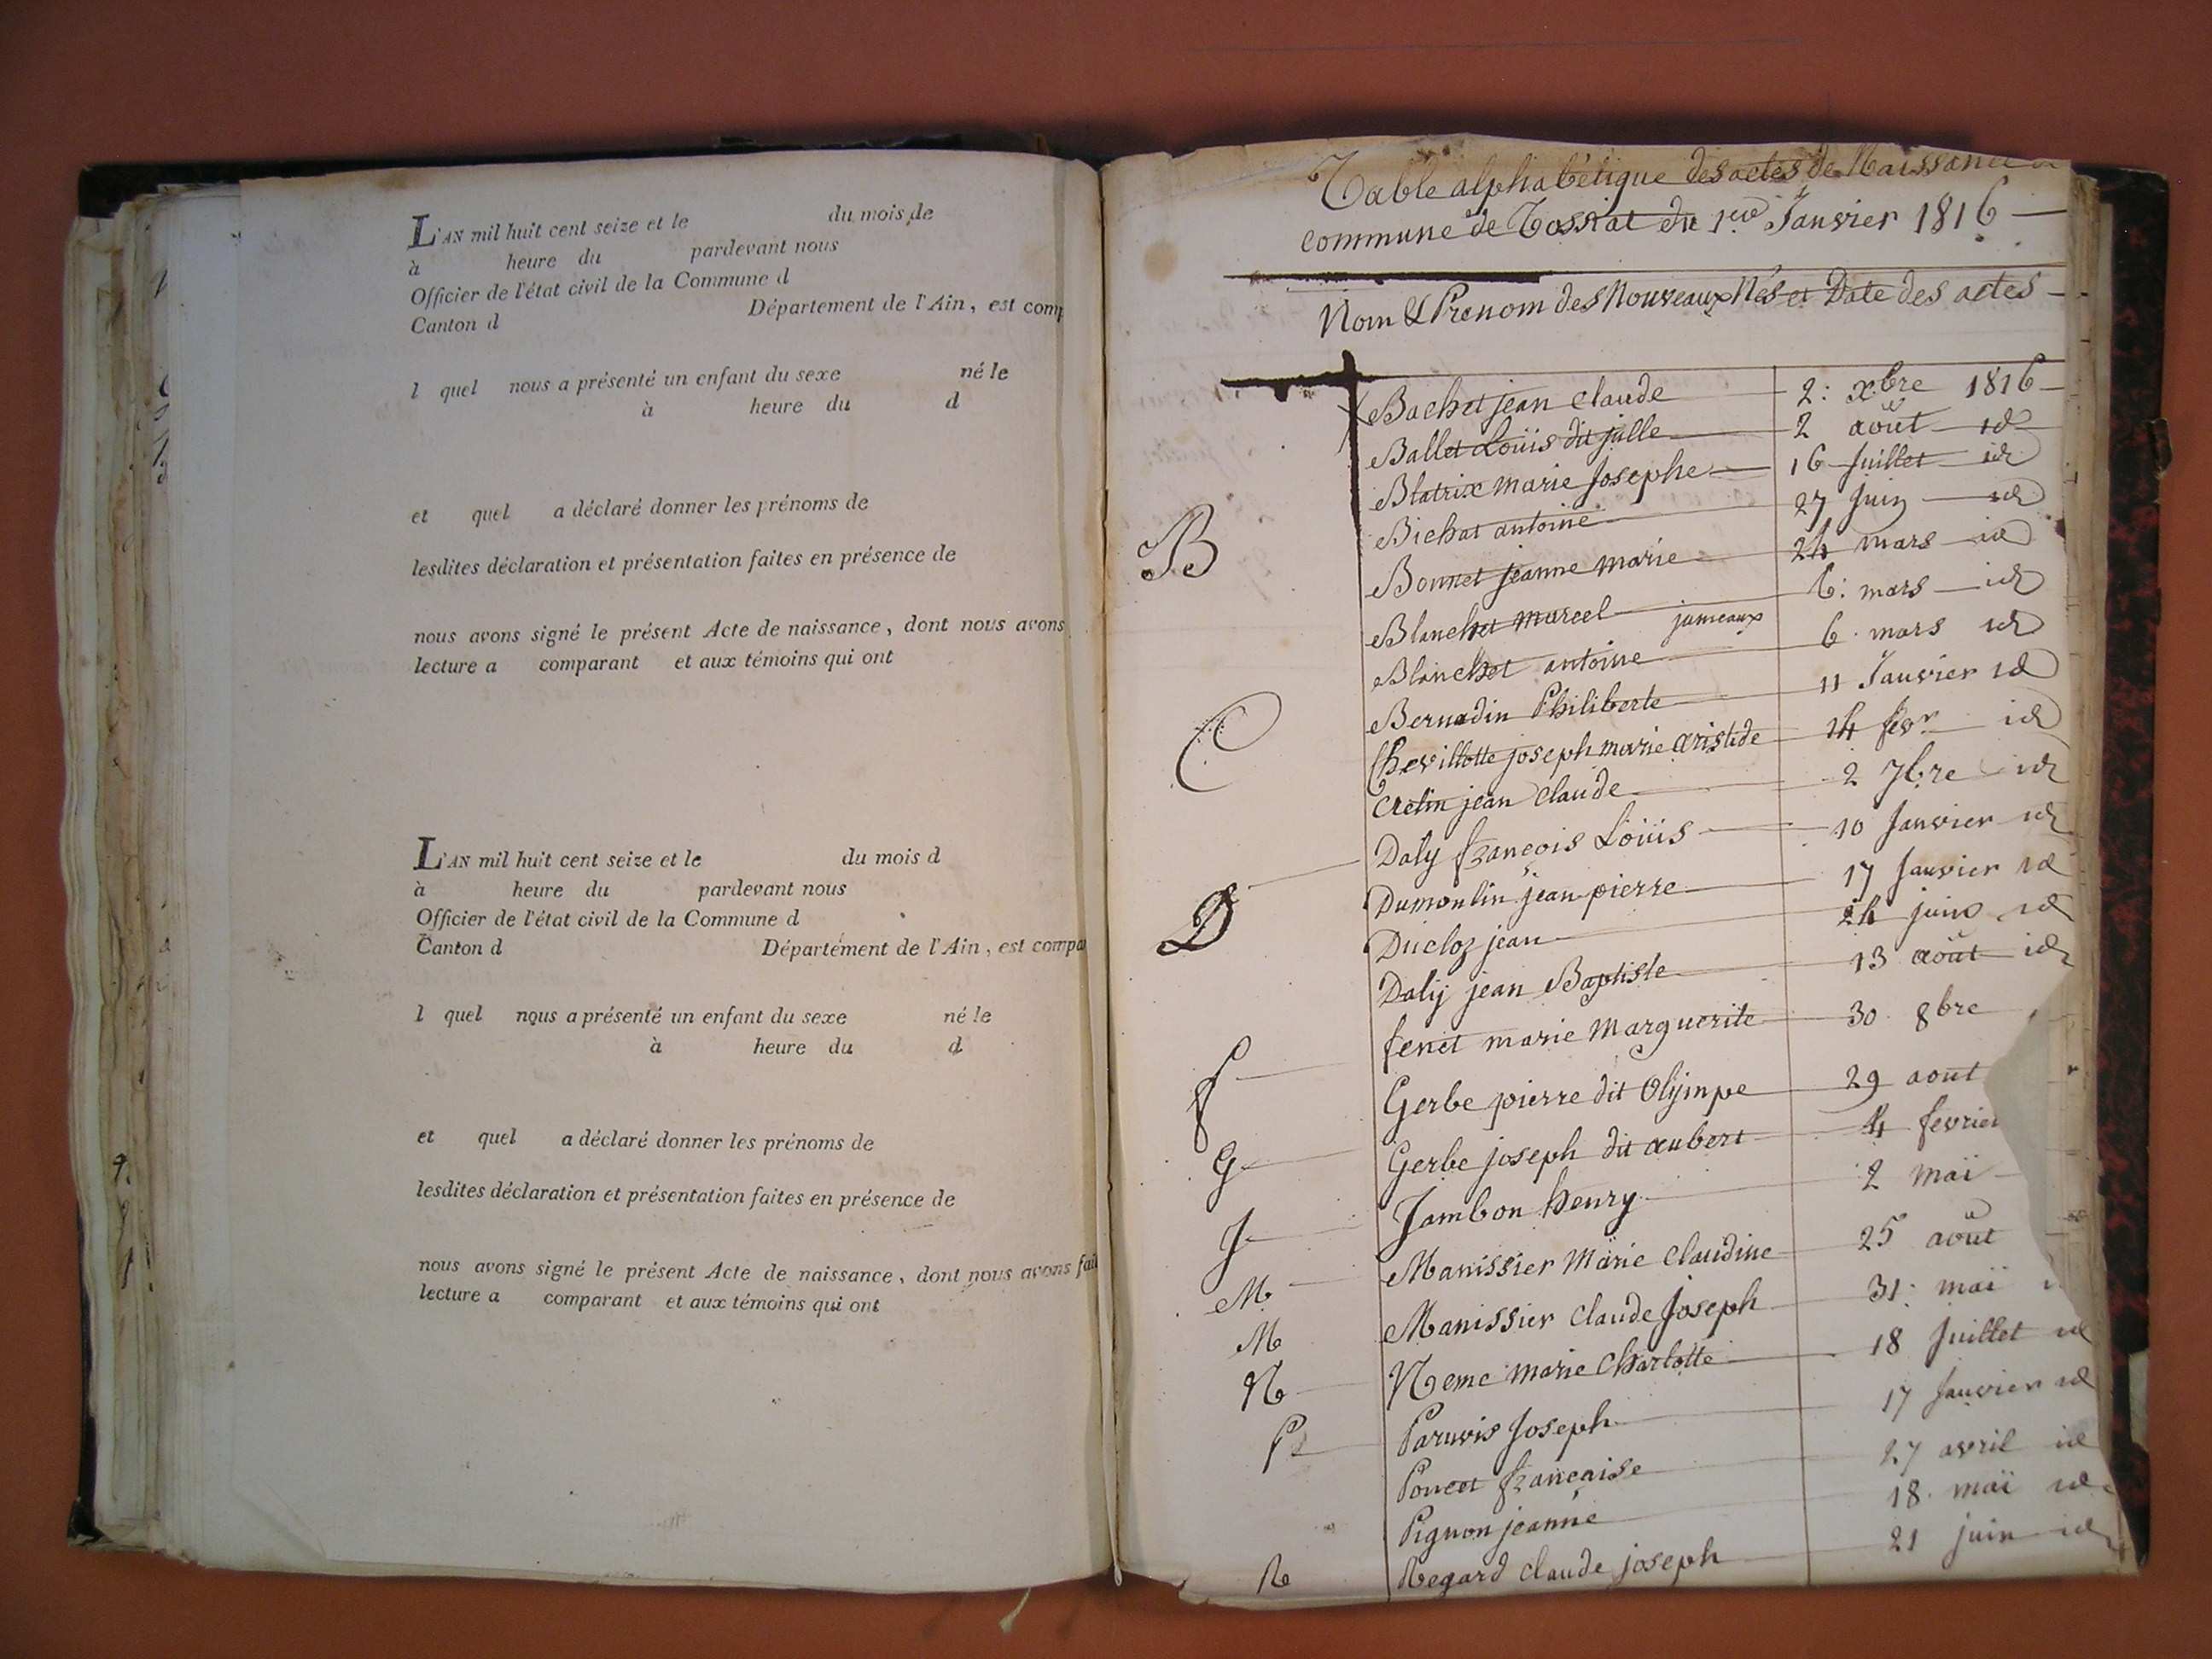 L'AN mil huit cent seize et le du mois de
à heure du pardevant nous
Officier de l'état civil de la Commune d
Canton d Département de l'Ain, est comp
l quel nous a présenté un enfant du sexe né le
à heure du d
et quel a déclaré donner les prénoms de
lesdites déclaration et présentation faites en présence de
nous avons signé le présent Acte de naissance, dont nous avons
lecture a comparant et aux témoins qui ont
L'AN mil huit cent seize et le du mois d
à heure du pardevant nous
Officier de l'état civil de la Commune d
Canton d Département de l'Ain, est compa
l quel nous a présenté un enfant du sexe né le
à heure du d
et quel a déclaré donner les prénoms de
lesdites déclaration et présentation faites en présence de
nous avons signé le présent Acte de naissance, dont nous avons fait
lecture a comparant et aux témoins qui ont
Table alphabétique des actes de Naissance
commune de Tossiat du 1er Janvier 1816
Nom & Prenom des Nouveaux Nés et Date des actes
Bachet jean claude 2: xbre 1816
Ballet Loüis dit julle 2 août id
Blatrix marie Josephe 16 Juillet id
Bichat antoine 27 Juin id
B Bonnet jeanne marie 24 mars id
Blanchet marcel jumeaux 6: mars id
Blanchet antoine 6 mars id
Bernadin Philiberte 11 Janvier id
C Chevillotte joseph marie aristide 14 fevr id
Cretin jean claude 2 7bre id
Daly françois Loüis 10 Janvier id
D Dumoulin jean pierre 17 Janvier id
Ducloz jean 24 juin id
Daly jean Baptiste 13 août id
f fenet marie Marguerite 30 8bre
G Gerbe pierre dit Olijmpe 29 aout
Gerbe joseph dit aubert 4 fevrier
J Jambon henry 2 maï
M Manissier Marie claudine 25 août
M Manissier claude Joseph 31 maï
N Neme marie Charlotte 18 Juillet id
P Paruvis Joseph 17 Janvier id
Poncet française 27 avril id
Pignon jeanne 18 maï id
R Regard claude joseph 21 juin id